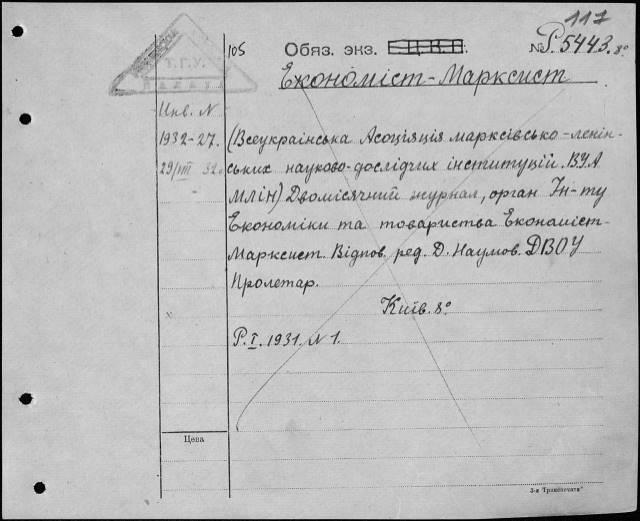 117
105 Обяз. экз. Е.Ц.К.П. № Р.5443. 8°
Т.Г.У.
ПАЛАТА
Економіст-Марксист
Инв. N
1932-27.
29/VIII 32.
(Всеукраінська Асоціяція марксівсько-ленін-
ських науково-дослідчих інституцій. ВУА
МЛІН) Двомісячний журнал, орган Ін-ту
Економіки та товариства Економіст-
Марксист. Відпов. ред. Д. Наумов. ДВОУ
Пролетар.
Київ. 8°
Р.I. 1931. N 1.
Цена
3-я "Транспечати"